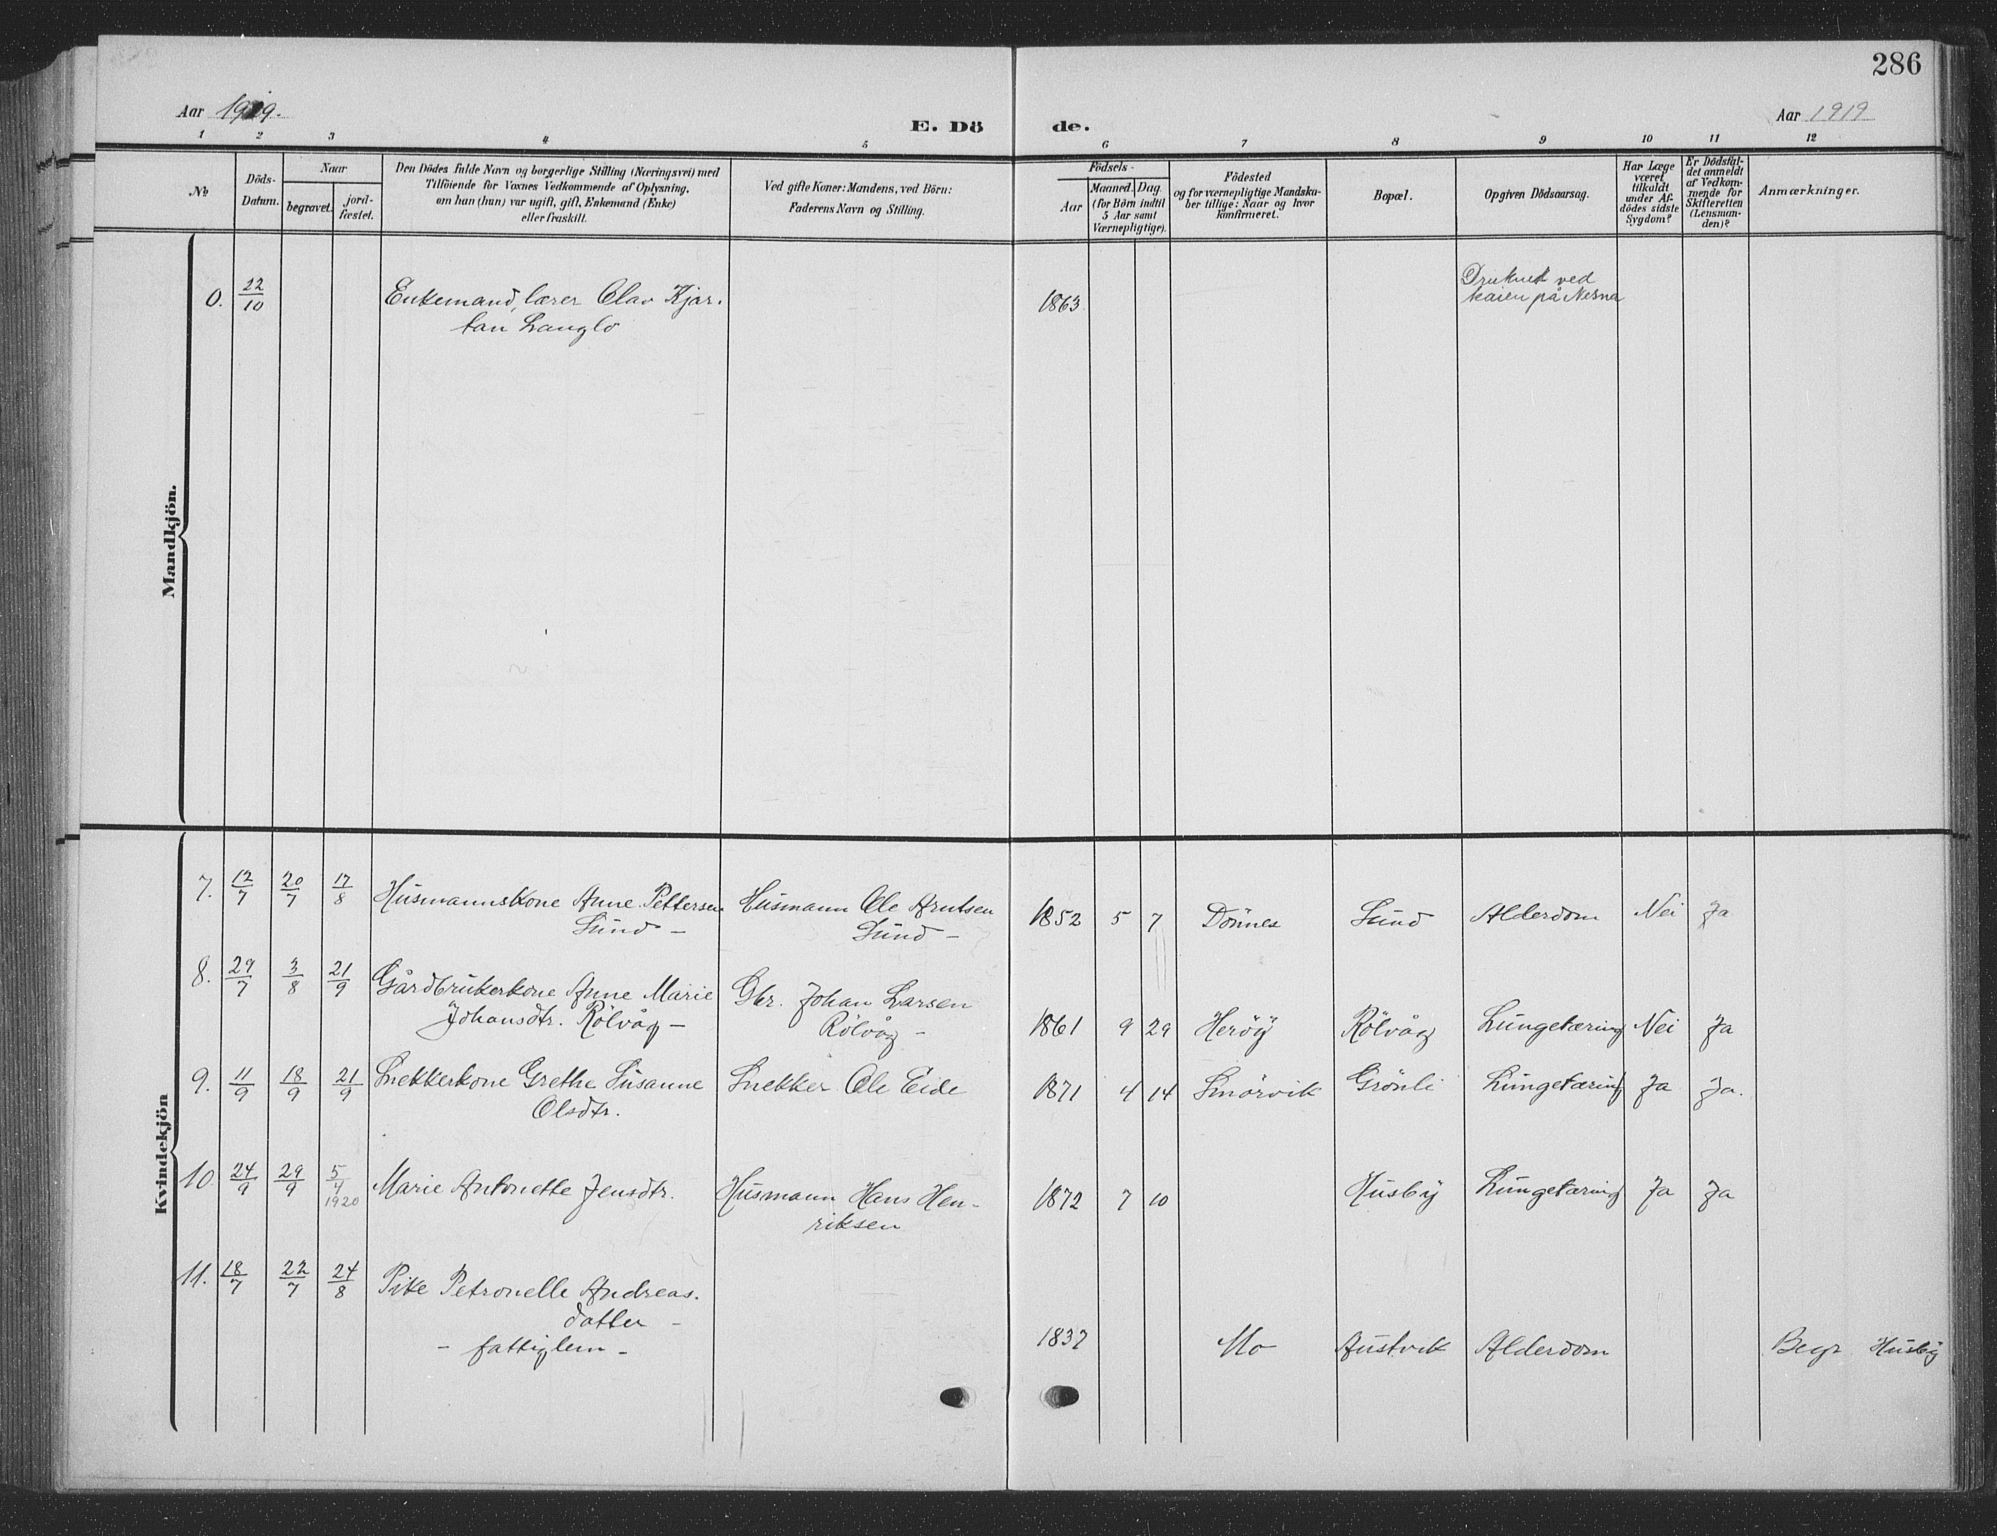 286
Aar 1919.
E. Dö
de.
Aar 1919
1 2 3 4 5 6 7 8 9 10 11 12
№
Döds-
Datum.
Naar
begravet.
jord-
fæstet.
Den Dödes fulde Navn og borgerlige Stilling (Næringsvei) med
Tilföiende for Voxnes Vedkommende af Oplysning,
om han (hun) var ugift, gift, Enkemand (Enke)
eller fraskilt.
Ved gifte Koner: Mandens, ved Börn:
Faderens Navn og Stilling.
Födsels-
Aar
Maaned.
Dag
(for Börn indtil
5 Aar samt
Værnepligtige).
Födested
og for værnepligtige Mandska-
ber tillige: Naar og hvor
konfirmeret.
Bopæl.
Opgiven Dödsaarsag.
Har Læge
været
tilkaldt
under Af-
dödes sidste
Sygdom?
Er Dödsfal-
det anmeldt
af Vedkom-
mende for
Skifteretten
(Lensman-
den)?
Anmærkninger.
Mandkjön.
0. 22/10 Enkemand, lærer Olav Kjar- 1863 Druknet ved
tan Langlo kaien på Nesna
Kvindekjön
7. 12/7 20/7 17/8 Husmannskone Anne Pettersen Husmann Ole Arntsen 1852 5 7 Dönnes Sund Alderdom Nei Ja
Sund - Sund -
8. 29/7 3/8 21/9 Gårdbrukerkone Anne Marie Gbr. Johan Larsen
Johansdtr. Rölvåg - Rölvåg - 1861 9 29 Heröy Rölvåg Lungetæring Nei Ja
9. 11/9 18/9 21/9 Snekkerkone Grethe Susanne Snekker Ole Eide 1871 4 14 Smörvik Grönli Lungetæring Ja Ja.
Olsdtr.
10. 24/9 29/9 5/4 1920 Marie Antonette Jensdtr. Husmann Hans Hen- 1872 7 10 Husby Lungetæring Ja Ja
riksen
11. 18/7 22/7 24/8 Pike Petronelle Andreas-
datter -
- fattiglem - 1837 Mo Austvik Alderdom Begr Husby